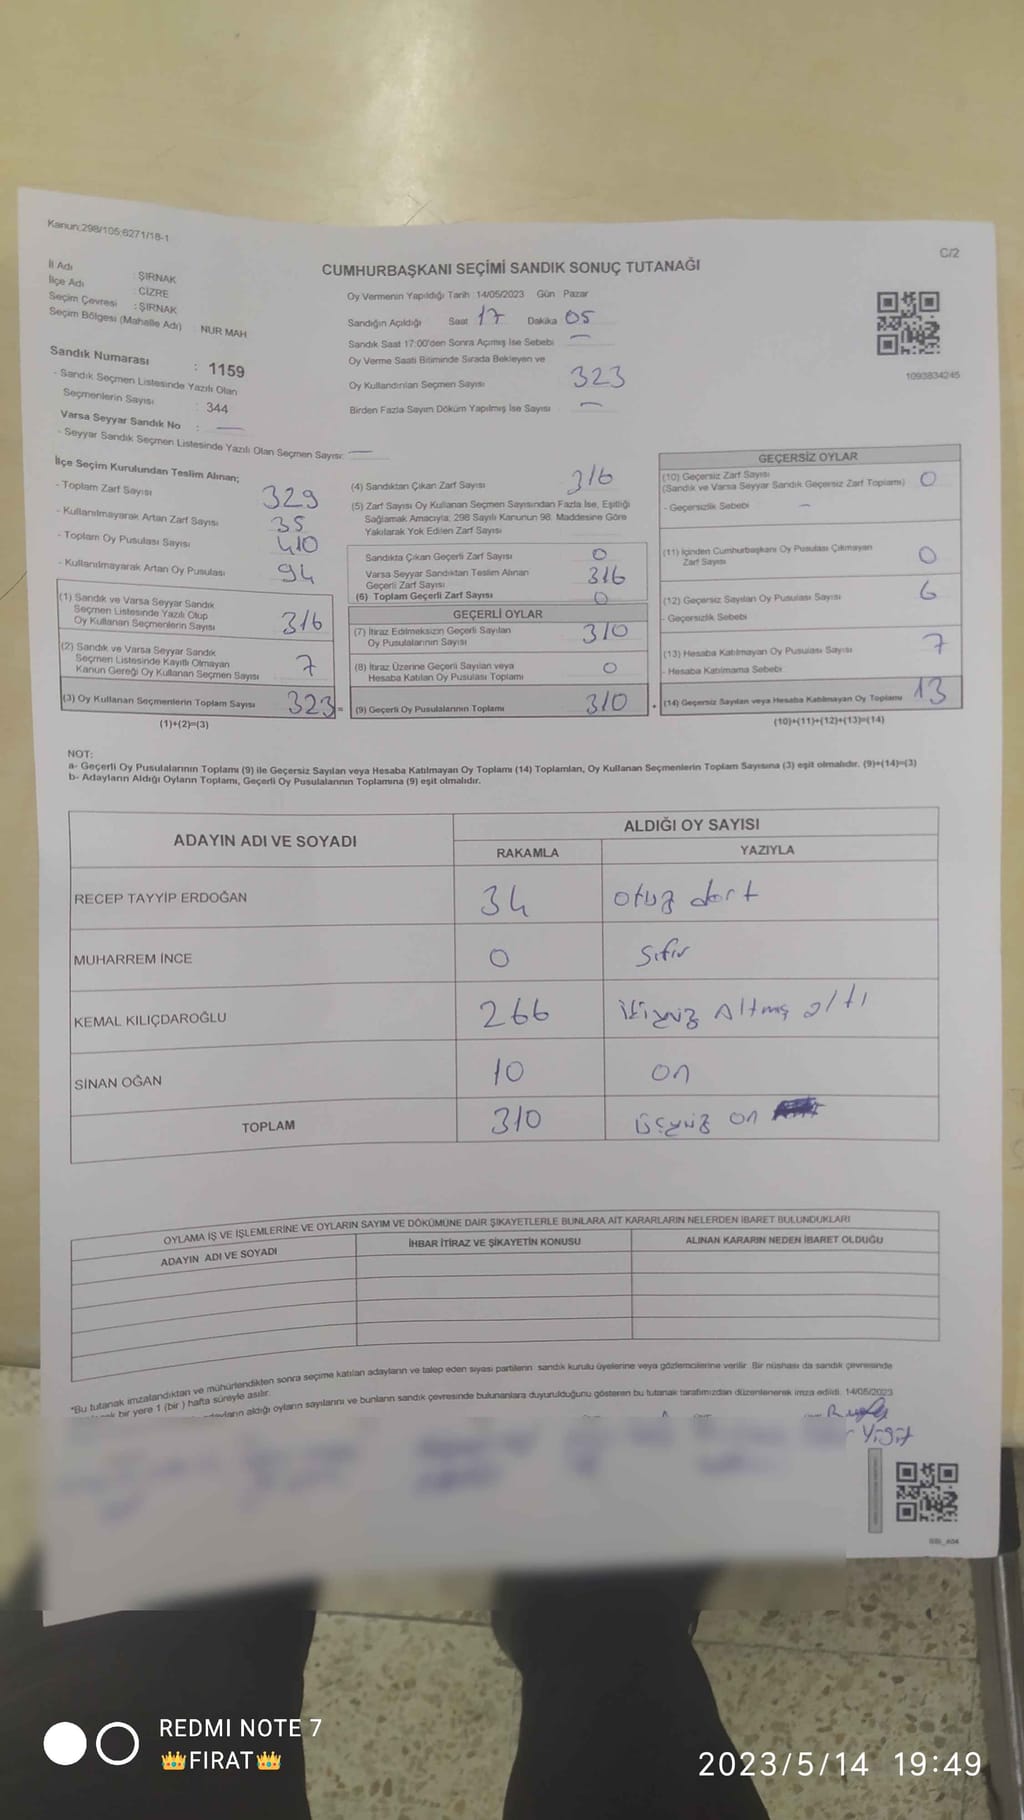 Kanun:298/105;6271/18-1
C/2
CUMHURBAŞKANI SEÇİMİ SANDIK SONUÇ TUTANAĞI
İl Adı : ŞIRNAK
İlçe Adı : CİZRE
Seçim Çevresi : ŞIRNAK
Seçim Bölgesi (Mahalle Adı) NUR MAH
Sandık Numarası : 1159
- Sandık Seçmen Listesinde Yazılı Olan
Seçmenlerin Sayısı : 344
Varsa Seyyar Sandık No : —
- Seyyar Sandık Seçmen Listesinde Yazılı Olan Seçmen Sayısı: —
Oy Vermenin Yapıldığı Tarih :14/05/2023 Gün Pazar
Sandığın Açıldığı Saat 17 Dakika 05
Sandık Saat 17:00'den Sonra Açılmış İse Sebebi —
Oy Verme Saati Bitiminde Sırada Bekleyen ve
Oy Kullandırılan Seçmen Sayısı 323
Birden Fazla Sayım Döküm Yapılmış İse Sayısı —
1093834245
İlçe Seçim Kurulundan Teslim Alınan;
- Toplam Zarf Sayısı 329
- Kullanılmayarak Artan Zarf Sayısı 35
- Toplam Oy Pusulası Sayısı 410
- Kullanılmayarak Artan Oy Pusulası 94
(1) Sandık ve Varsa Seyyar Sandık
Seçmen Listesinde Yazılı Olup
Oy Kullanan Seçmenlerin Sayısı 316
(2) Sandık ve Varsa Seyyar Sandık
Seçmen Listesinde Kayıtlı Olmayan
Kanun Gereği Oy Kullanan Seçmen Sayısı 7
(3) Oy Kullanan Seçmenlerin Toplam Sayısı 323 =
(1)+(2)=(3)
(4) Sandıktan Çıkan Zarf Sayısı 316
(5) Zarf Sayısı Oy Kullanan Seçmen Sayısından Fazla İse, Eşitliği
Sağlamak Amacıyla; 298 Sayılı Kanunun 98. Maddesine Göre
Yakılarak Yok Edilen Zarf Sayısı
Sandıkta Çıkan Geçerli Zarf Sayısı 0
Varsa Seyyar Sandıktan Teslim Alınan
Geçerli Zarf Sayısı 316
(6) Toplam Geçerli Zarf Sayısı 0
GEÇERLİ OYLAR
(7) İtiraz Edilmeksizin Geçerli Sayılan
Oy Pusulalarının Sayısı 310
(8) İtiraz Üzerine Geçerli Sayılan veya
Hesaba Katılan Oy Pusulası Toplamı 0
(9) Geçerli Oy Pusulalarının Toplamı 310 +
GEÇERSİZ OYLAR
(10) Geçersiz Zarf Sayısı 0
(Sandık ve Varsa Seyyar Sandık Geçersiz Zarf Toplamı)
- Geçersizlik Sebebi —
(11) İçinden Cumhurbaşkanı Oy Pusulası Çıkmayan
Zarf Sayısı 0
(12) Geçersiz Sayılan Oy Pusulası Sayısı 6
- Geçersizlik Sebebi
(13) Hesaba Katılmayan Oy Pusulası Sayısı 7
- Hesaba Katılmama Sebebi
(14) Geçersiz Sayılan veya Hesaba Katılmayan Oy Toplamı 13
(10)+(11)+(12)+(13)=(14)
NOT:
a- Geçerli Oy Pusulalarının Toplamı (9) ile Geçersiz Sayılan veya Hesaba Katılmayan Oy Toplamı (14) Toplamları, Oy Kullanan Seçmenlerin Toplam Sayısına (3) eşit olmalıdır. (9)+(14)=(3)
b- Adayların Aldığı Oyların Toplamı, Geçerli Oy Pusulalarının Toplamına (9) eşit olmalıdır.
ADAYIN ADI VE SOYADI ALDIĞI OY SAYISI
RAKAMLA YAZIYLA
RECEP TAYYİP ERDOĞAN 34 otuz dört
MUHARREM İNCE 0 Sıfır
KEMAL KILIÇDAROĞLU 266 ikiyüz Altmış altı
SİNAN OĞAN 10 on
TOPLAM 310 üçyüz on
OYLAMA İŞ VE İŞLEMLERİNE VE OYLARIN SAYIM VE DÖKÜMÜNE DAİR ŞİKAYETLERLE BUNLARA AİT KARARLARIN NELERDEN İBARET BULUNDUKLARI
ADAYIN ADI VE SOYADI İHBAR İTİRAZ VE ŞİKAYETİN KONUSU ALINAN KARARIN NEDEN İBARET OLDUĞU
*Bu tutanak imzalandıktan ve mühürlendikten sonra seçime katılan adayların ve talep eden siyasi partilerin sandık kurulu üyelerine veya gözlemcilerine verilir. Bir nüshası da sandık çevresinde
bir yere 1 (bir) hafta süreyle asılır.
aldığı oyların sayılarını ve bunların sandık çevresinde bulunanlara duyurulduğunu gösteren bu tutanak tarafımızdan düzenlenerek imza edildi. 14/05/2023
Yiğit
REDMI NOTE 7
👑FIRAT👑
2023/5/14 19:49